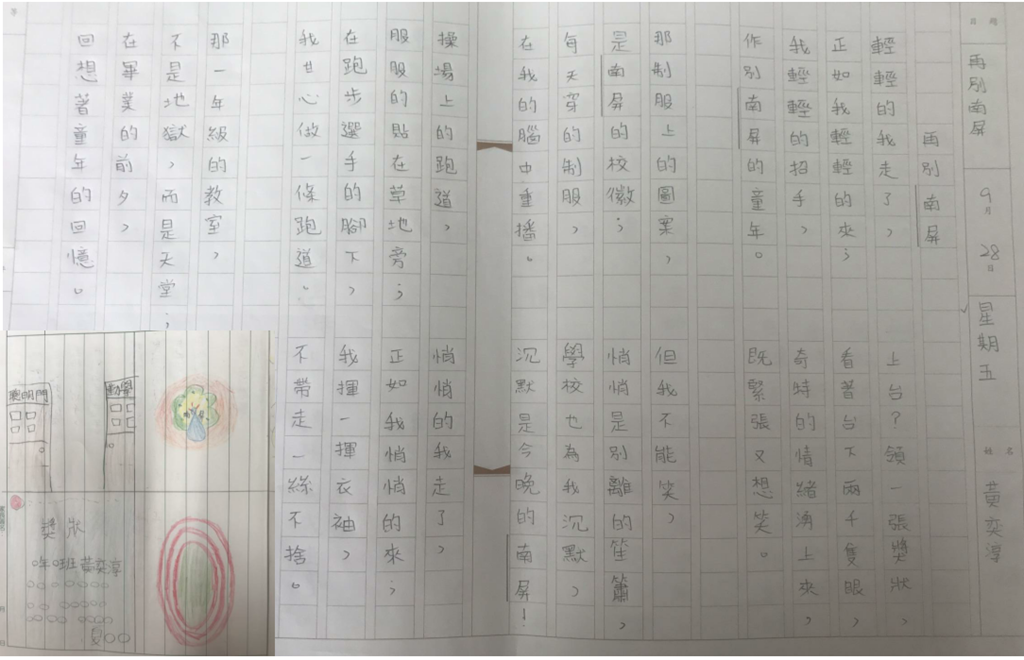 日期
再別南屏
9月28日
星期五
姓名
黃奕淳
再別南屏
輕輕的我走了,
正如我輕輕的來;
我輕輕的招手,
作別南屏的童年。
那制服上的圖案,
是南屏的校徽;
每天穿的制服,
在我的腦中重播。
操場上的跑道,
服服的貼在草地旁;
在跑步選手的腳下,
我甘心做一條跑道。
那一年級的教室,
不是地獄,而是天堂;
在畢業的前夕,
回想著童年的回憶。
上台?領一張獎狀,
看著台下兩千隻眼,
奇時的情緒湧上來,
既緊張又想笑。
但我不能笑,
悄悄是別離的笙簫,
學校也為我沉默,
沉默是今晚的南屏!
悄悄的我走了,
正如我悄悄的來;
我揮一揮衣袖,
不帶走一絲不捨。
聰明門
勤學
獎狀
○年○班黃奕淳